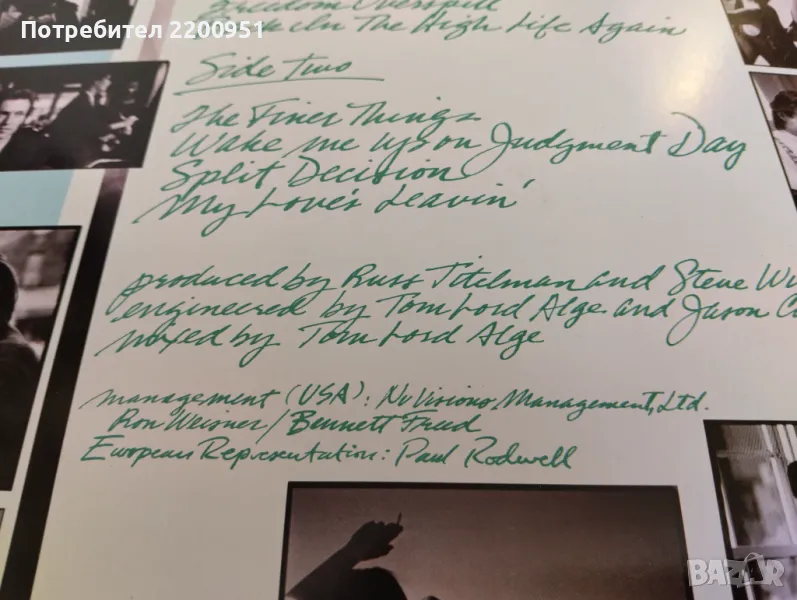 Потребител 2200951
Freedom Overspill
In The High Life Again
Side Two
The Finer Things
Wake me up on Judgment Day
Split Decision
My Love's Leavin'
produced by Russ Titelman and Steve Wi
engineered by Tom Lord Alge and Jason C
mixed by Tom Lord Alge
management (USA): NuVisions Management, Ltd.
Ron Weisner / Bennett Freed
European Representation: Paul Rodwell
BAZAR